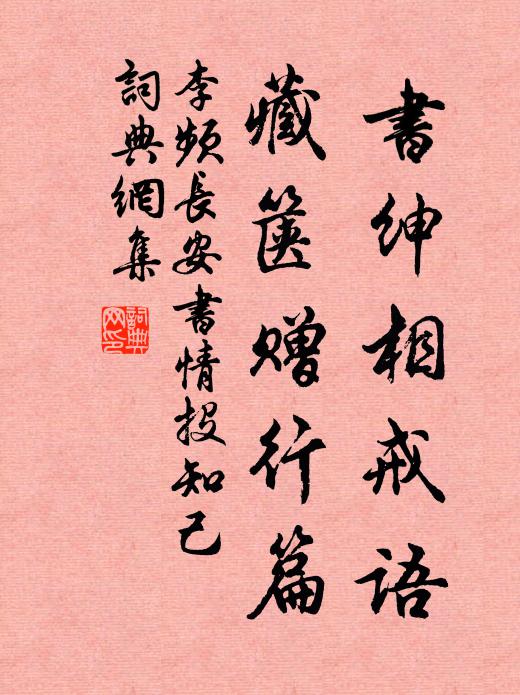 書紳相戒語
藏篋贈行篇
李頻長安書情投知己
詞典網集
詞典
网印